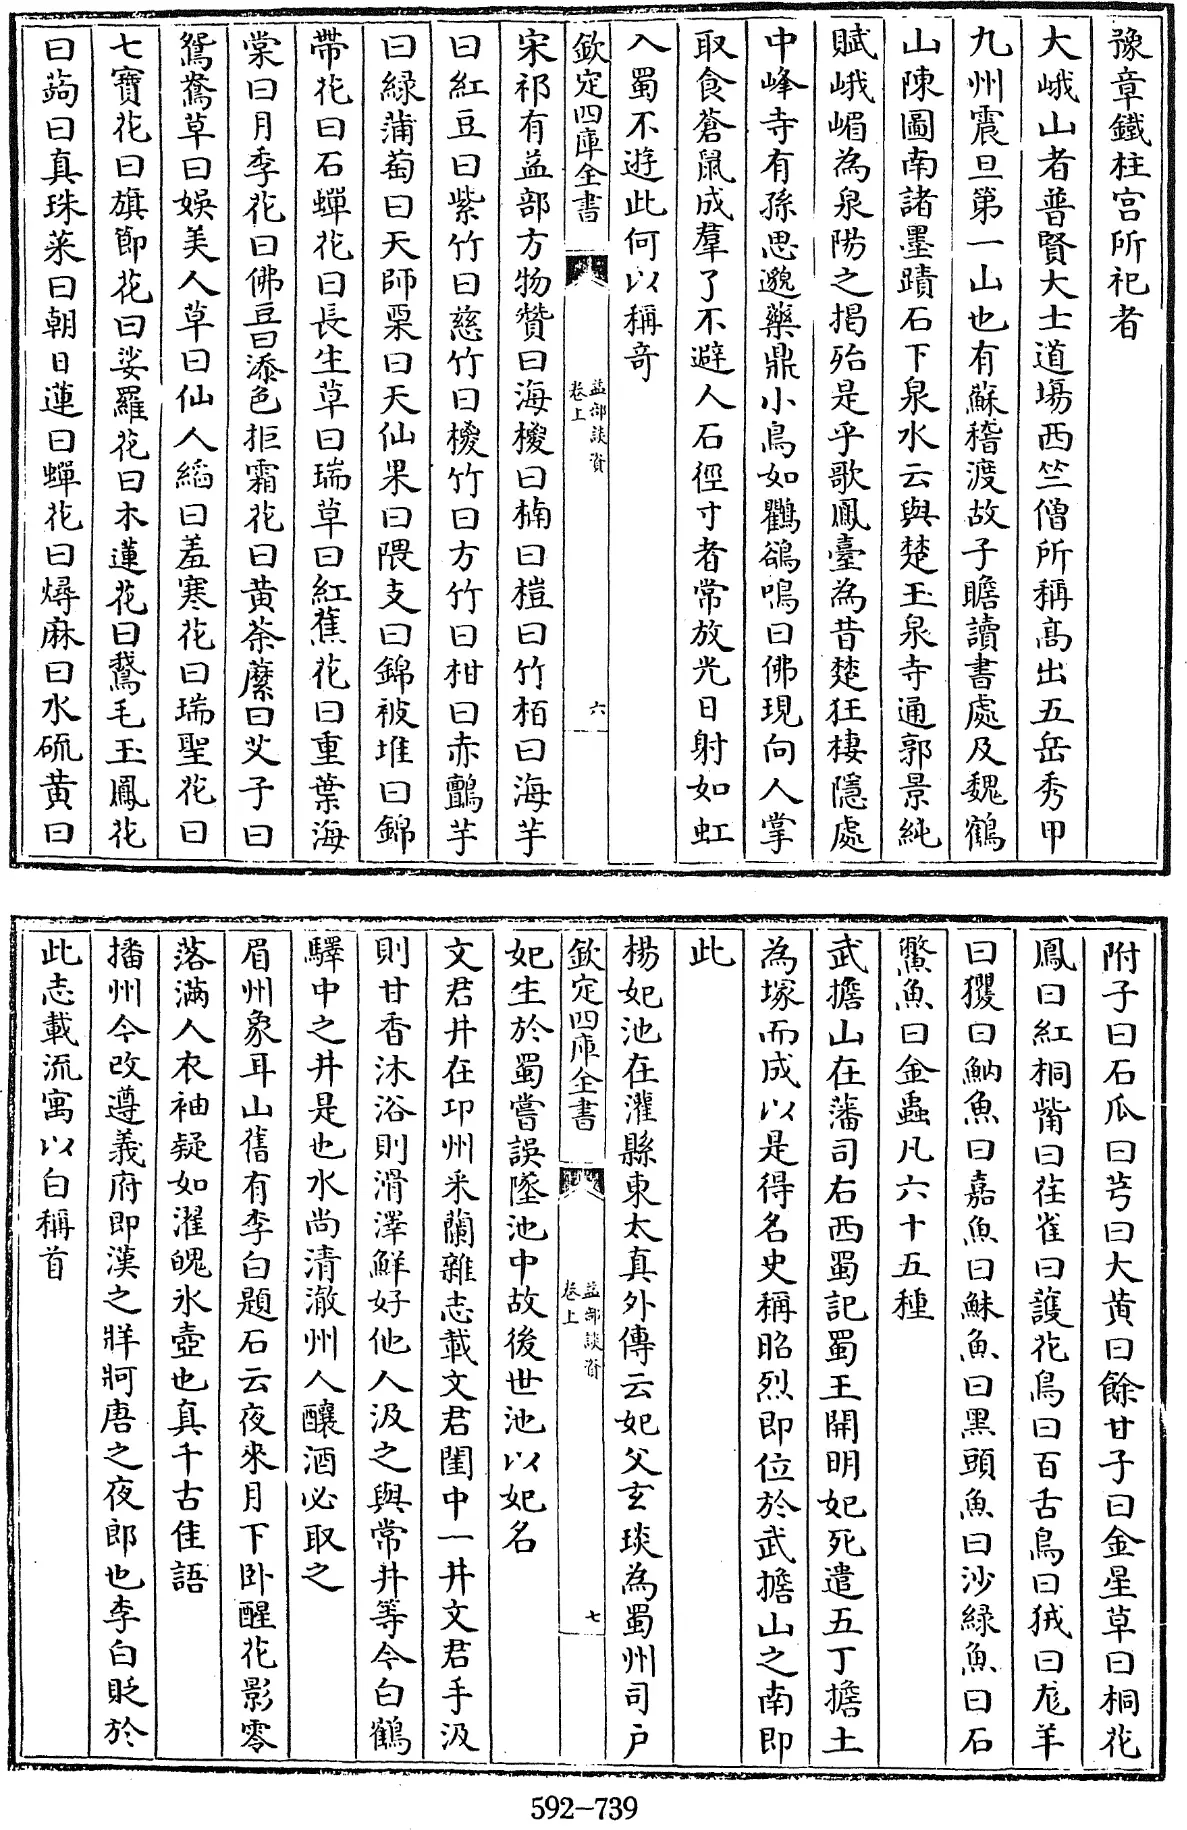 豫章鐵柱宮所祀者
大峨山者普賢大士道場西竺僧所稱髙出五岳秀甲
九州震旦第一山也有蘇稽渡故子瞻讀書處及魏鶴
山陳圖南諸墨蹟石下泉水云與楚玉泉寺通郭景純
賦峨嵋為泉陽之揭殆是乎歌鳳臺為昔楚狂棲隱處
中峰寺有孫思邈藥鼎小鳥如鸜鵒鳴曰佛現向人掌
取食蒼鼠成羣了不避人石徑寸者常放光日射如虹
入蜀不遊此何以稱竒
欽定四庫全書
益部談資
卷上
六
宋祁有益部方物贊曰海椶曰楠曰榿曰竹栢曰海芋
曰紅豆曰紫竹曰慈竹曰椶竹曰方竹曰柑曰赤鸇芋
曰緑蒲萄曰天師栗曰天仙果曰隈支曰錦被堆曰錦
帶花曰石蟬花曰長生草曰瑞草曰紅蕉花曰重葉海
棠曰月季花曰佛豆曰添色拒霜花曰黄荼蘼曰艾子曰
鴛鴦草曰娛美人草曰仙人縚曰羞寒花曰瑞聖花曰
七寶花曰旗節花曰娑羅花曰木蓮花曰鵞毛玉鳳花
曰蒟曰真珠菜曰朝日蓮曰蟬花曰燖麻曰水硫黄曰
附子曰石瓜曰芎曰大黄曰餘甘子曰金星草曰桐花
鳳曰紅桐觜曰荏雀曰護花鳥曰百舌鳥曰狨曰尨羊
曰玃曰魶魚曰嘉魚曰鮇魚曰黑頭魚曰沙緑魚曰石
鱉魚曰金蟲凡六十五種
武擔山在藩司右西蜀記蜀王開明妃死遣五丁擔土
為塚而成以是得名史稱昭烈即位於武擔山之南即
此
楊妃池在灌縣東太真外傳云妃父玄琰為蜀州司戸
欽定四庫全書
益部談資
卷上
七
妃生於蜀嘗誤墜池中故後世池以妃名
文君井在邛州采蘭雜志載文君閨中一井文君手汲
則甘香沐浴則滑澤鮮好他人汲之與常井等今白鶴
驛中之井是也水尚清澈州人釀酒必取之
眉州象耳山舊有李白題石云夜來月下卧醒花影零
落滿人衣袖疑如濯魄氷壺也真千古佳語
播州今改遵義府即漢之牂牁唐之夜郎也李白貶於
此志載流寓以白稱首
592-739